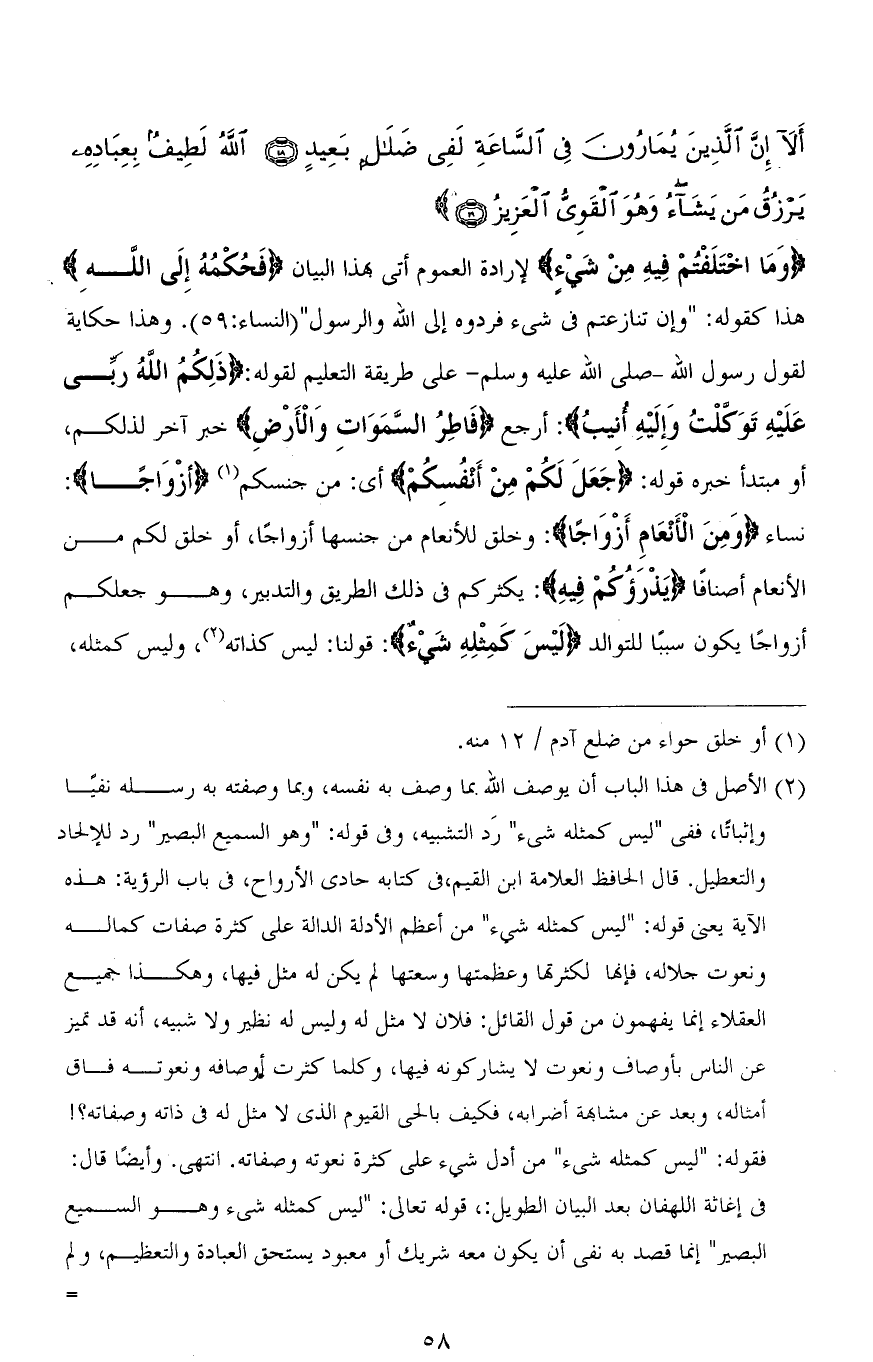 أَلَآ إِنَّ ٱلَّذِينَ يُمَارُونَ فِى ٱلسَّاعَةِ لَفِى ضَلَـٰلٍۭ بَعِيدٍ ۝١٨ ٱللَّهُ لَطِيفٌۢ بِعِبَادِهِۦ
يَرْزُقُ مَن يَشَآءُ ۖ وَهُوَ ٱلْقَوِىُّ ٱلْعَزِيزُ ۝١٩﴾
﴿وَمَا اخْتَلَفْتُمْ فِيهِ مِنْ شَيْءٍ﴾ لإرادة العموم أتى بهذا البيان ﴿فَحُكْمُهُ إِلَى اللَّـهِ﴾
هذا كقوله: "وإن تنازعتم فى شىء فردوه إلى الله والرسول"(النساء:٥٩). وهذا حكاية
لقول رسول الله -صلى الله عليه وسلم- على طريقة التعليم لقوله:﴿ذَلِكُمُ اللَّهُ رَبِّـى
عَلَيْهِ تَوَكَّلْتُ وَإِلَيْهِ أُنِيبُ﴾: أرجع ﴿فَاطِرُ السَّمَوَاتِ وَالْأَرْضِ﴾ خبر آخر لذلكـم،
أو مبتدأ خبره قوله: ﴿جَعَلَ لَكُمْ مِنْ أَنْفُسِكُمْ﴾ أى: من جنسكم(١) ﴿أَزْوَاجًـا﴾:
نساء ﴿وَمِنَ الْأَنْعَامِ أَزْوَاجًا﴾: وخلق للأنعام من جنسها أزواجًا، أو خلق لكم مـن
الأنعام أصنافًا ﴿يَذْرَؤُكُمْ فِيهِ﴾: يكثركم فى ذلك الطريق والتدبير، وهـو جعلكـم
أزواجًا يكون سببًا للتوالد ﴿لَيْسَ كَمِثْلِهِ شَيْءٌ﴾: قولنا: ليس كذاته(٢)، وليس كمثله،
(١) أو خلق حواء من ضلع آدم / ١٢ منه.
(٢) الأصل فى هذا الباب أن يوصف الله بما وصف به نفسه، وبما وصفته به رسـله نفيًـا
وإثباتًا، ففى "ليس كمثله شىء" رَد التشبيه، وفى قوله: "وهو السميع البصير" رد للإلحاد
والتعطيل. قال الحافظ العلامة ابن القيم،فى كتابه حادى الأرواح، فى باب الرؤية: هـذه
الآية يعنى قوله: "ليس كمثله شيء" من أعظم الأدلة الدالة على كثرة صفات كمالـه
ونعوت جلاله، فإنها لكثرتها وعظمتها وسعتها لم يكن له مثل فيها، وهكـذا جميـع
العقلاء إنما يفهمون من قول القائل: فلان لا مثل له وليس له نظير ولا شبيه، أنه قد تميز
عن الناس بأوصاف ونعوت لا يشاركونه فيها، وكلما كثرت أوصافه ونعوتـه فـاق
أمثاله، وبعد عن مشابهة أضرابه، فكيف بالحى القيوم الذى لا مثل له فى ذاته وصفاته؟!
فقوله: "ليس كمثله شىء" من أدل شيء على كثرة نعوته وصفاته. انتهى. وأيضًا قال:
فى إغاثة اللهفان بعد البيان الطويل:، قوله تعالى: "ليس كمثله شىء وهـو السـميع
البصير" إنما قصد به نفى أن يكون معه شريك أو معبود يستحق العبادة والتعظيـم، ولم
=
٥٨